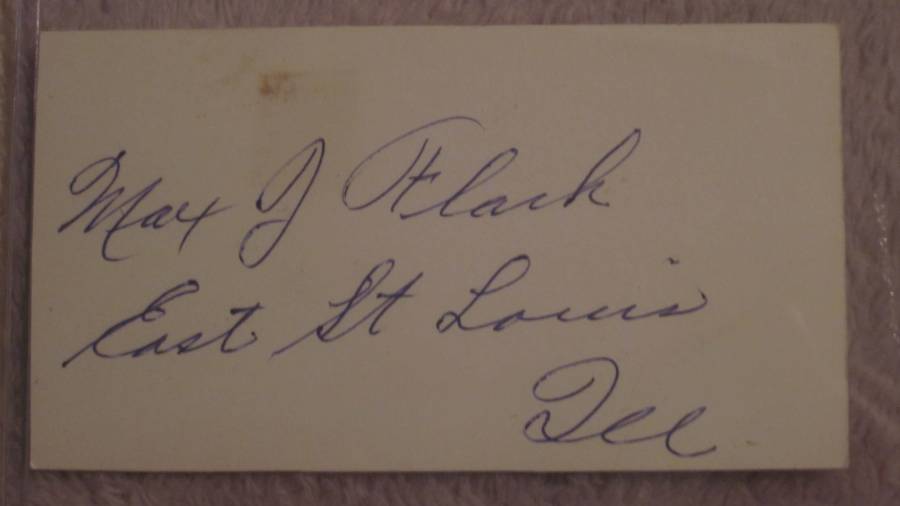 Max J Flack
East St Louis
Ill